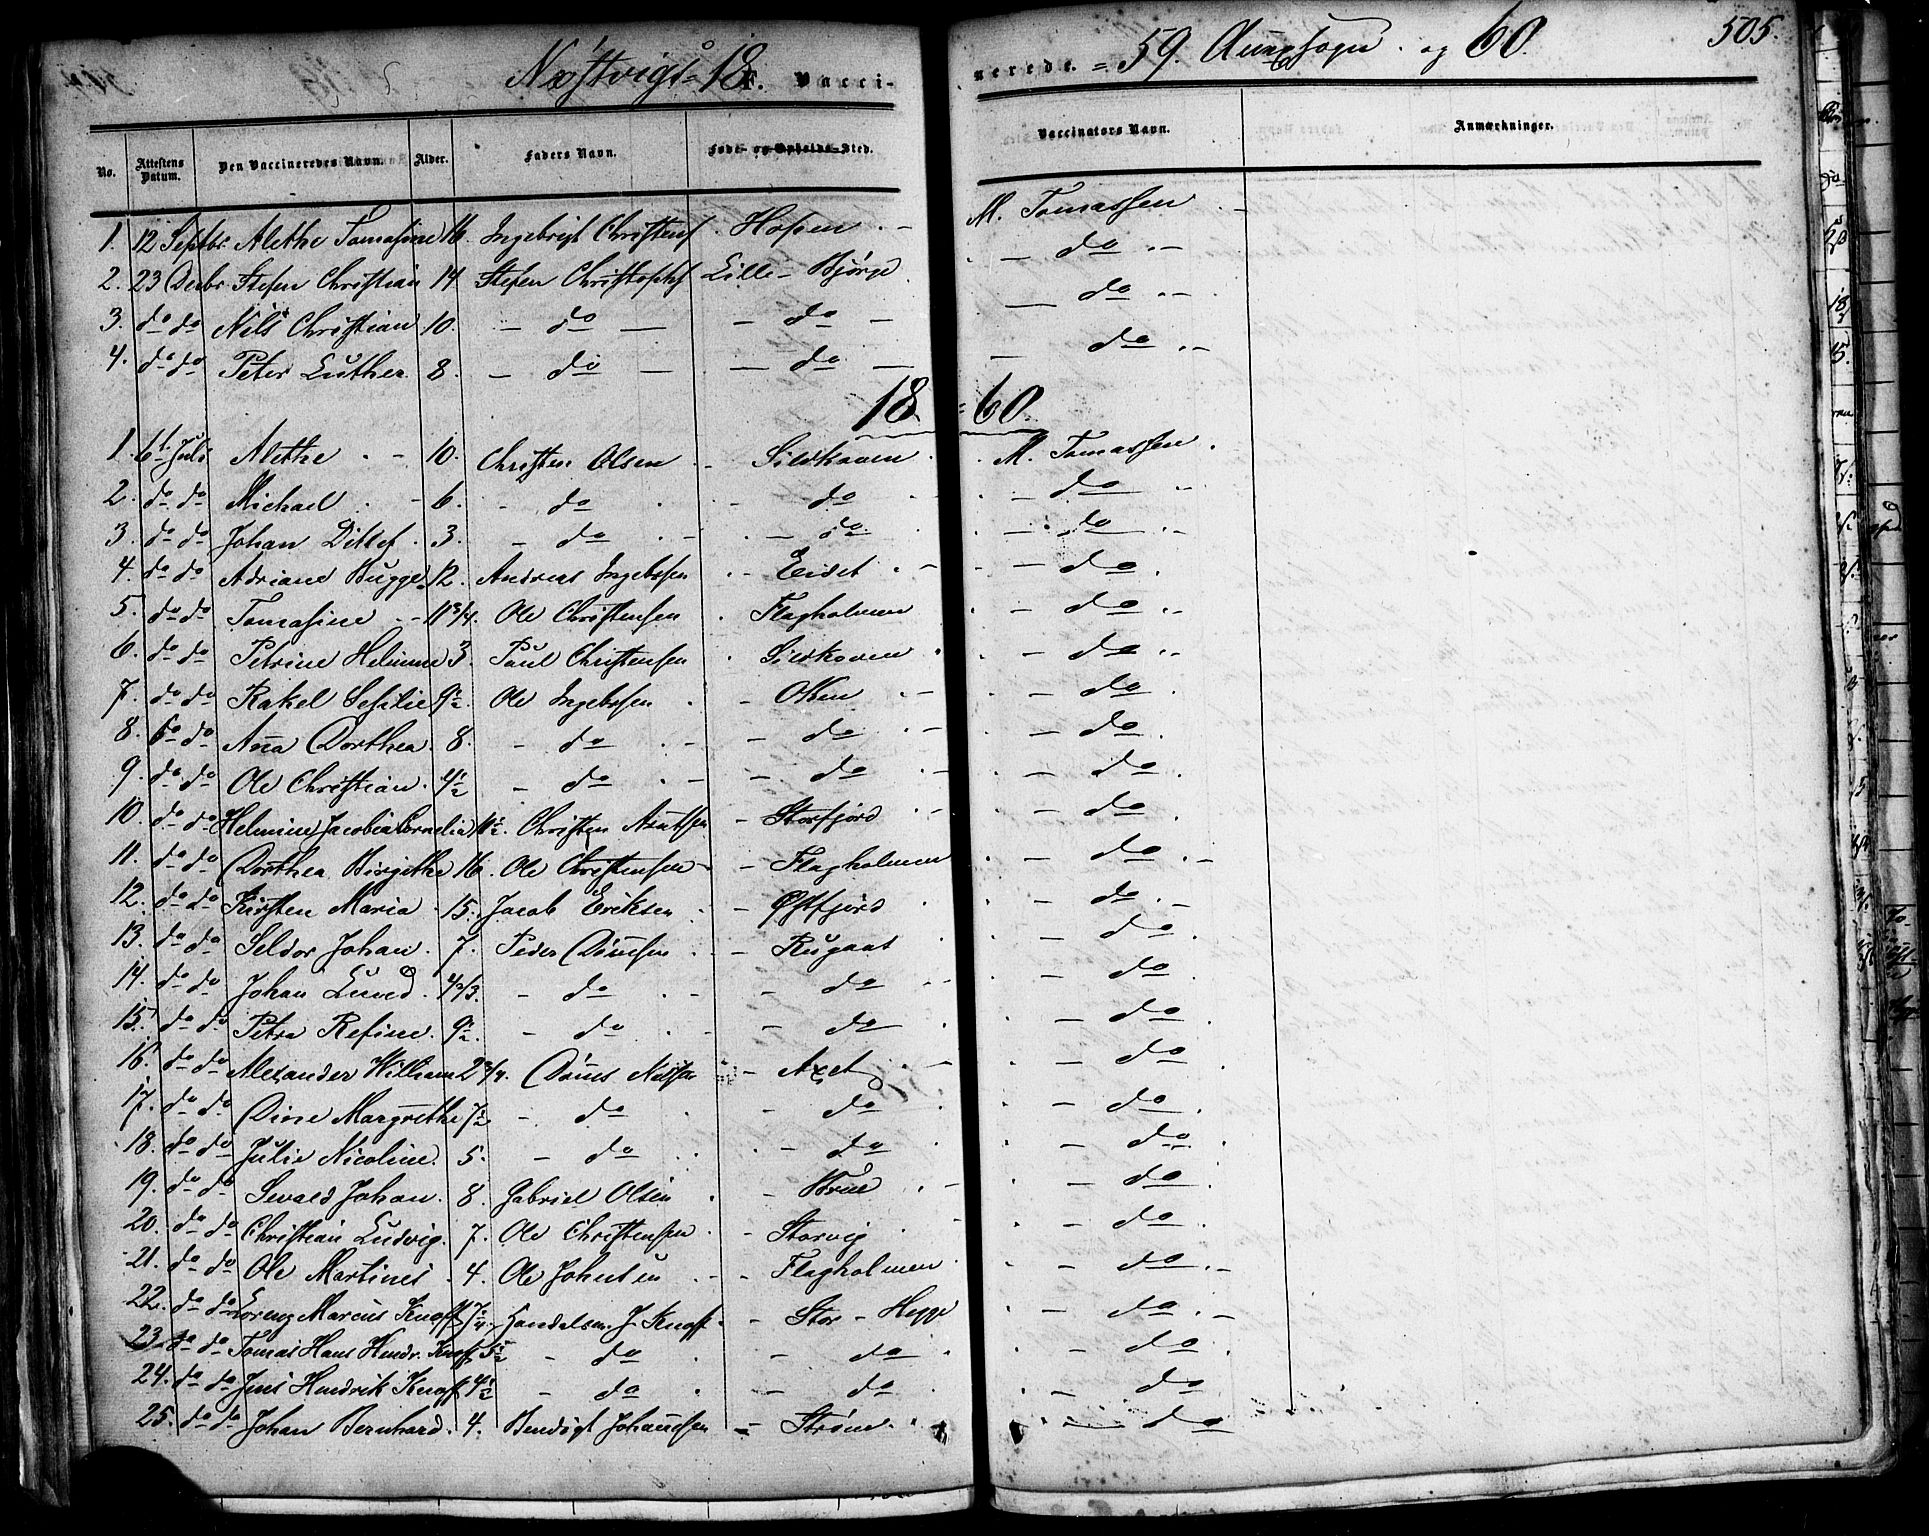 Næstvigs 18 Vaccinerede. 59. Annexsogn. og 60. 505.
No. Attestens Datum. Den Vaccineredes Navn. Alder. Faders Navn. Føde- og Opholds-Sted. Vaccinators Navn. Anmærkninger.
1. 12 Septbr. Alethe Tomasine 16. Ingebrigt Christens. Hosen. M. Tomassen
2. 23 Decbr. Stefen Christian 14 Stefen Christophs. Lille-Bjørge do
3. do do Nils Christian 10. do do do
4. do do Peter Luther 8. do do do
18 60.
1. 6te Juli Alethe 10. Christen Olsen Sildhaven M. Tomassen
2. do do Michael 6. do do do
3. do do Johan Ditlef 3. do do do
4. do do Adriane Bugge 12. Andreas Ingebrsen Eidet do
5. do do Tomasine 11 3/4. Ole Christensen Flagholmen do
6. do do Petrine Helmine 3 Paul Christensen Sildhaven do
7. do do Rakel Sesilie 9 1/2. Ole Ingebrsen do
8. do do Anna Dorthea 8. do do do
9. do do Ole Christian 4 1/2 do do do
10. do do Helmine Jacobia Cornelia 11 1/2. Christen Knutsen Storfjord do
11. do do Dorthea Birgithe 16. Ole Christensen Flagholmen do
12. do do Kirsten Maria 15. Jacob Eriksen Østfjord do
13. do do Seldor Johan 7. Peder Dønnesen Rugaas do
14. do do Johan Lund 4 2/3. do do do
15. do do Petra Refine 9 1/2. do do do
16. do do Alexander William 2 3/4. Dønnes Nilsen do
17. do do Dine Margrethe 7 1/2 do do do
18. do do Julie Nicoline 5. do do do
19. do do Sevald Johan. 8. Gabriel Olsen do
20. do do Christian Ludvig. 7. Ole Christensen Storvig do
21. do do Ole Martines 4. Ole Johnsen Flagholmen do
22. do do Lorenz Marcus Knoff 7 Handelsm. J. Knoff Stor-Hegge do
23. do do Tomas Hans Hendr. Knoff 5 1/2 do do do
24. do do Jens Hendrik Knoff 4 1/2 do do do
25. do do Johan Bernhard. 4. Bendigt Johannesen Strøm do